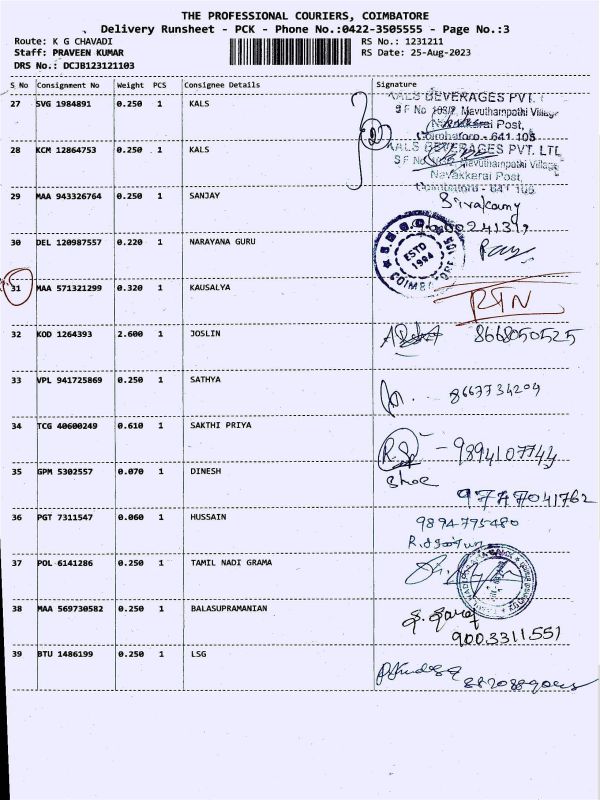 THE PROFESSIONAL COURIERS, COIMBATORE
Delivery Runsheet - PCK - Phone No.:0422-3505555 - Page No.:3
Route: K G CHAVADI RS No.: 1231211
Staff: PRAVEEN KUMAR RS Date: 25-Aug-2023
DRS No.: DCJB123121103
S No Consignment No Weight PCS Consignee Details Signature
27 SVG 1984891 0.250 1 KALS
KALS BEVERAGES PVT.
S F No Mavuthampathi Village
Navakkerai Post,
Coimbatore - 641 105
28 KCM 12864753 0.250 1 KALS
KALS BEVERAGES PVT. LTD
S F No Mavuthampathi Village
Navakkerai Post,
Coimbatore - 641 105
29 MAA 943326764 0.250 1 SANJAY
30 DEL 120987557 0.220 1 NARAYANA GURU
ESTD
1994
COIMBATORE
31 MAA 571321299 0.320 1 KAUSALYA RTN
32 KOD 1264393 2.600 1 JOSLIN 8668050525
33 VPL 941725869 0.250 1 SATHYA 8667734204
34 TCG 40600249 0.610 1 SAKTHI PRIYA - 9894107744
35 GPM 5302557 0.070 1 DINESH
9747041762
36 PGT 7311547 0.060 1 HUSSAIN 9894-775480
37 POL 6141286 0.250 1 TAMIL NADI GRAMA
38 MAA 569730582 0.250 1 BALASUPRAMANIAN
9003311551
39 BTU 1486199 0.250 1 LSG